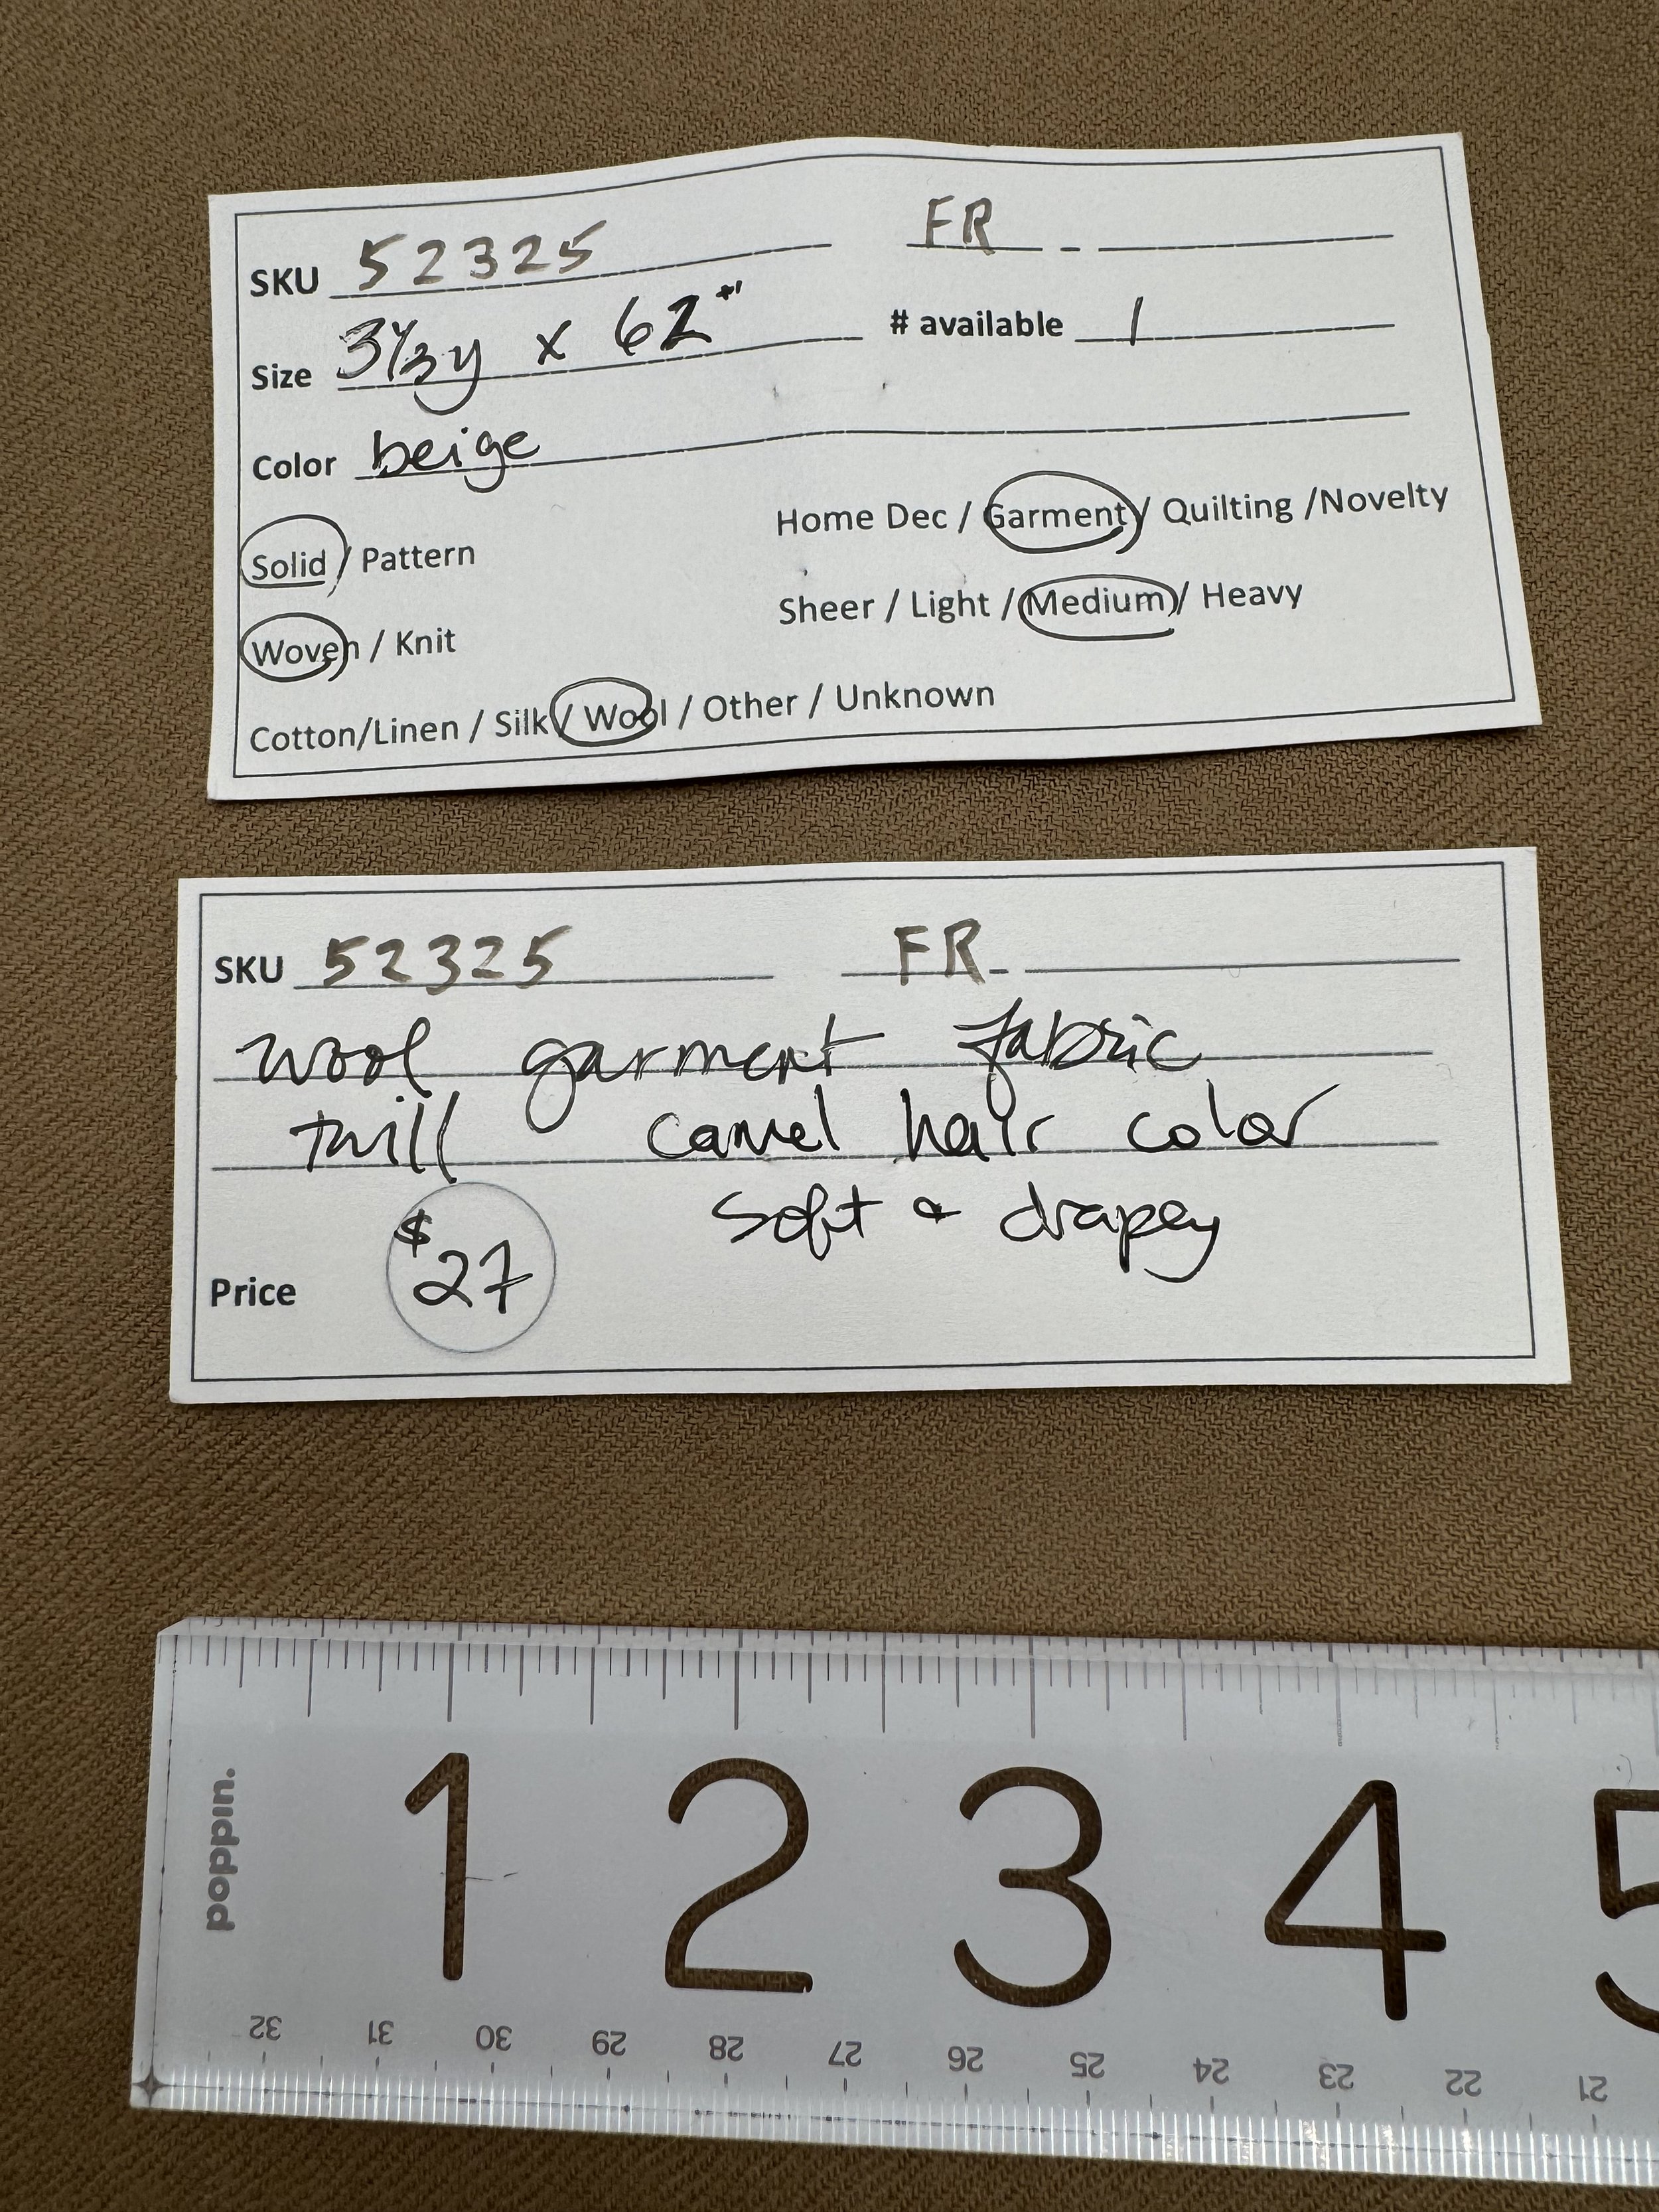 SKU 52325 FR -
Size 3 1/3y x 62" # available 1
Color beige
Solid / Pattern Home Dec / Garment / Quilting /Novelty
Woven / Knit Sheer / Light / Medium / Heavy
Cotton/Linen / Silk / Wool / Other / Unknown
SKU 52325 FR -
wool garment fabric
twill camel hair color
soft & drapey
Price $27
1 2 3 4 5
poppin.
32 31 30 29 28 27 26 25 24 23 22 21